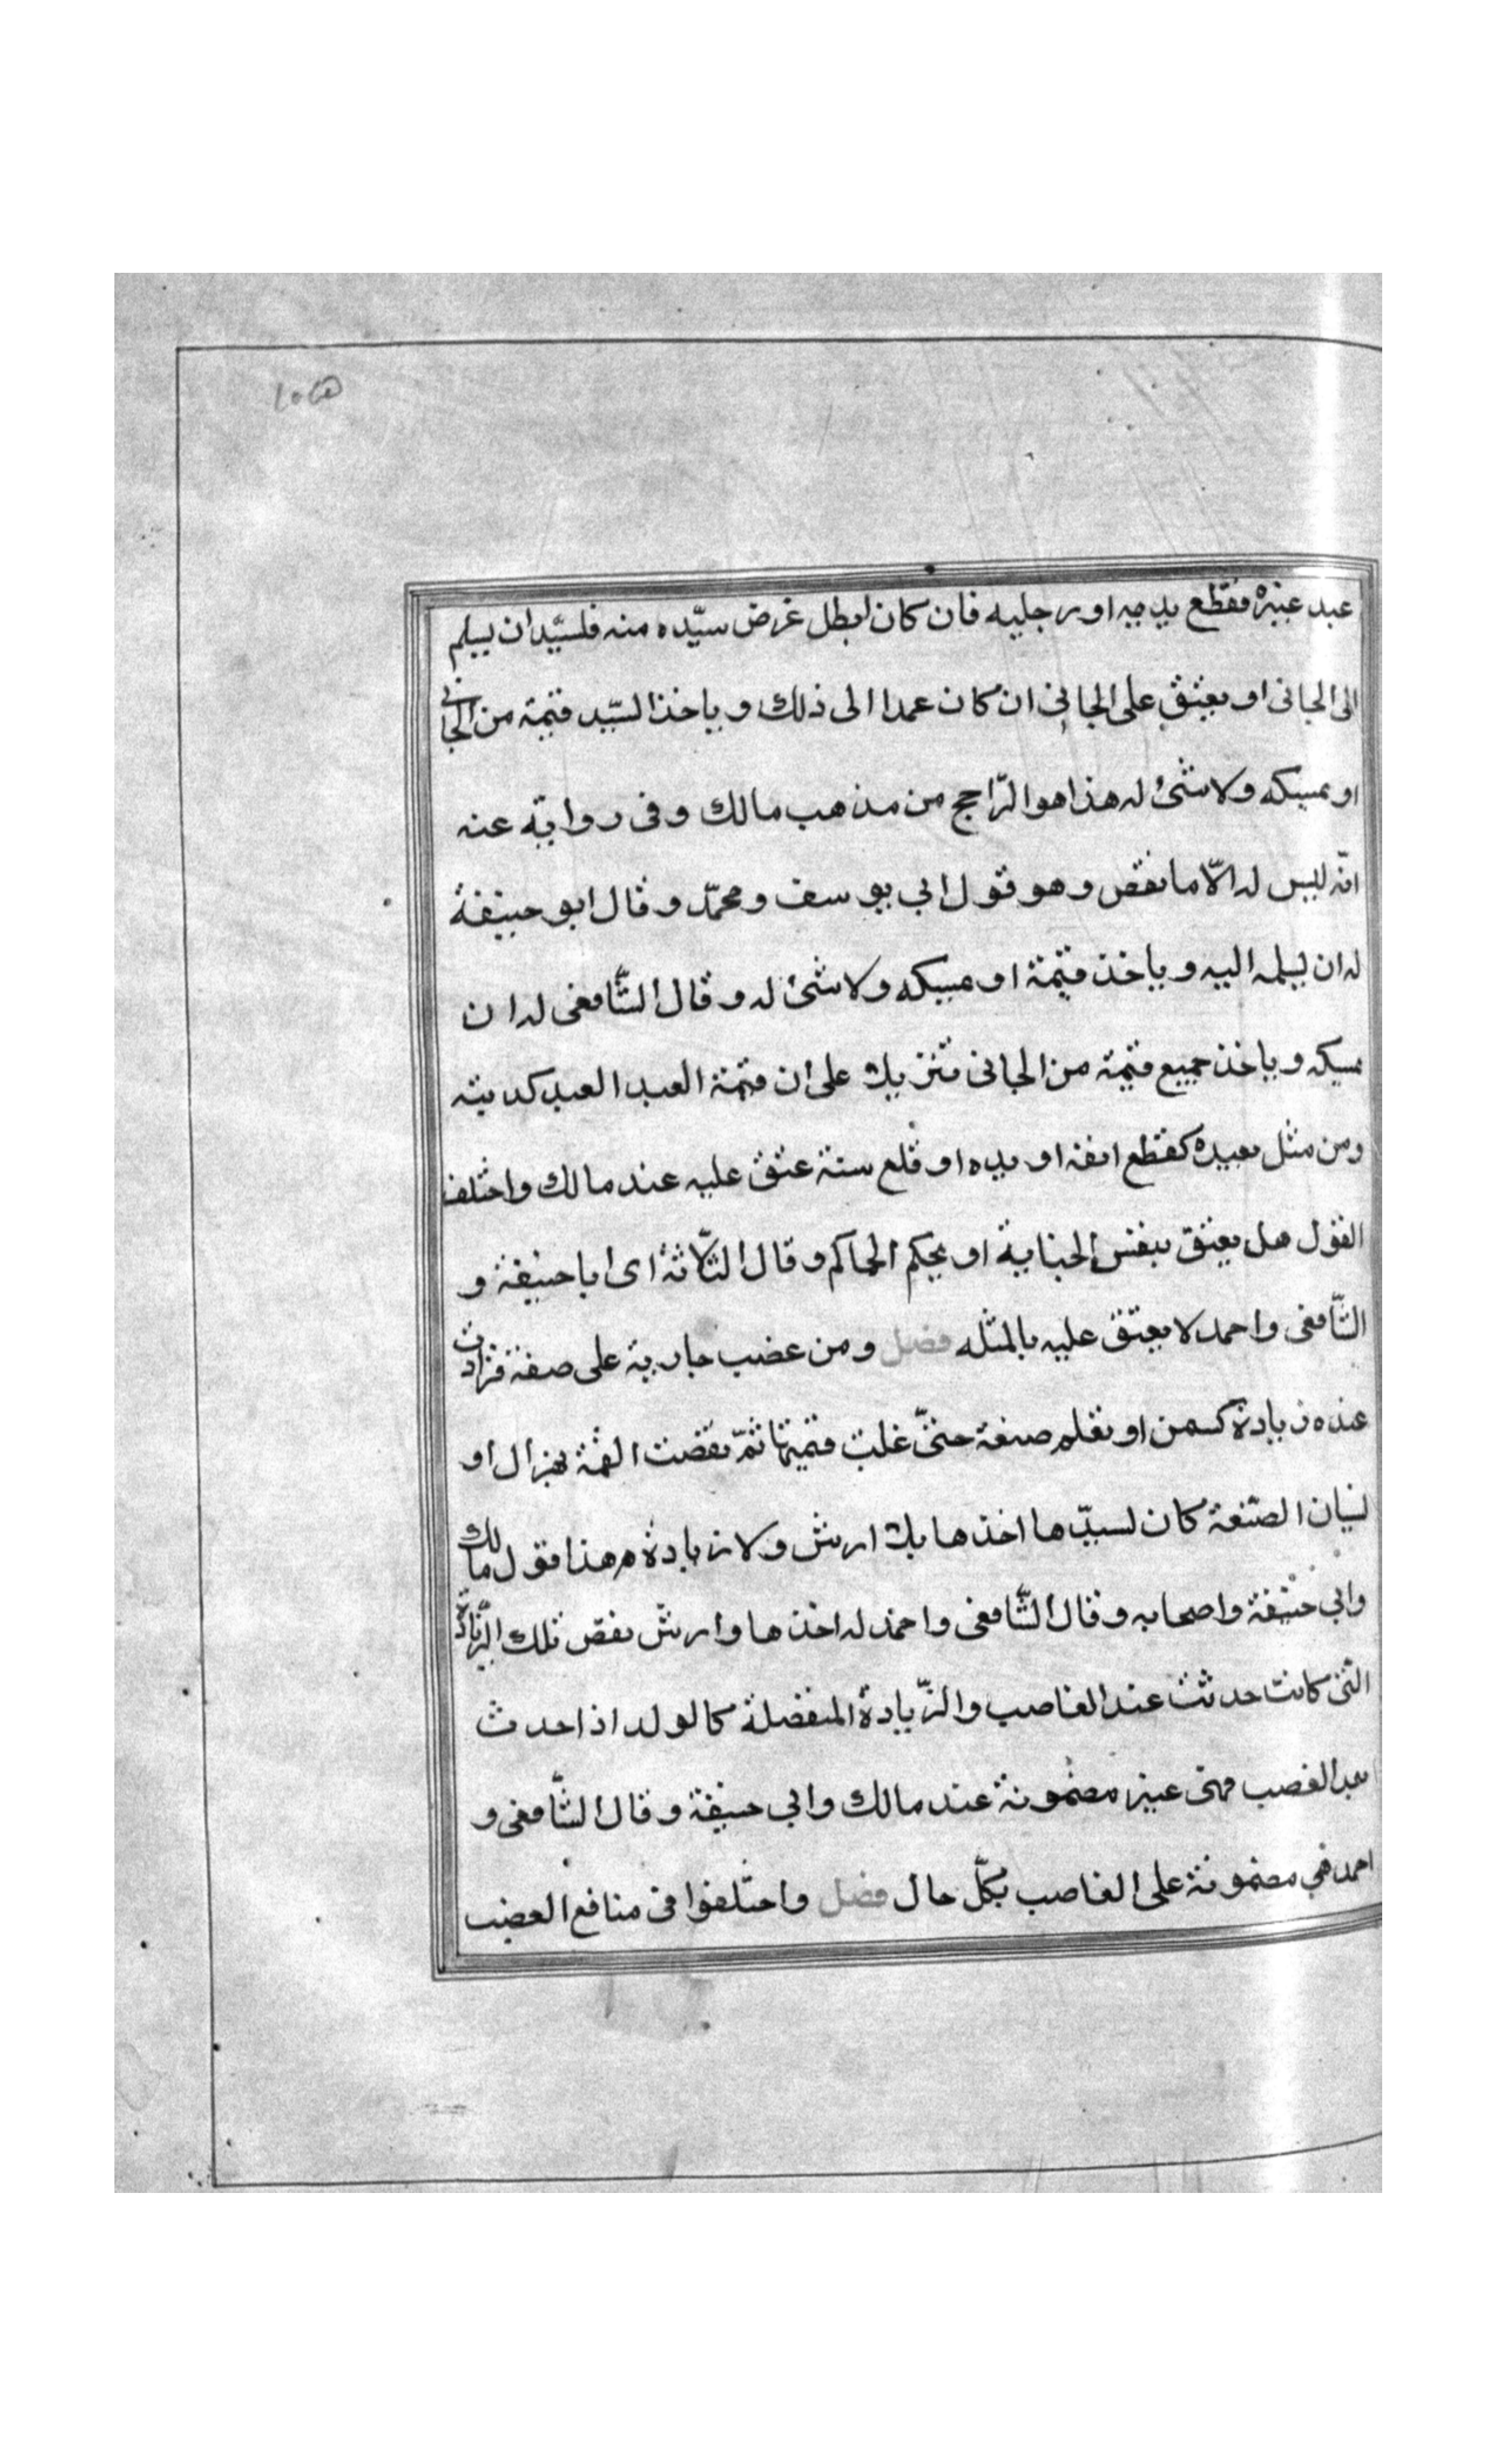 عبد غيره فقطع يديه او رجليه فان كان ابطل غرض سيّده منه فلسيّد ان يسلم
الى الجانى او يعتق على الجانى ان كان عمدا الى ذلك و ياخذ السيّد قيمة من الجانى
او يمسكه ولا شئ له هذا هو الرّاجح من مذهب مالك وفى رواية عنه
انّه ليس له الّا ما نقص وهو قول ابي يوسف ومحمّد وقال ابو حنيفة
له ان يسلمه اليه و ياخذ قيمة او يمسكه ولا شئ له وقال الشّافعى له ان
يمسكه و ياخذ جميع قيمة من الجانى تنزيلا على ان قيمة العبد العبد كديته
ومن مثل بعبده كقطع انفه او يده او قلع سنة عتق عليه عند مالك واختلف
القول هل يعتق بنفس الجناية او بحكم الحاكم وقال الثّلاثة اى ابا حنيفة و
الشّافعى واحمد لا يعتق عليه بالمثله فصل ومن غضب جارية على صفة فزادت
عنده زيادة كسمن او تعلم صنعة حتّى غلت قيمتها ثمّ نقصت القمة بهزال او
نسيان الصّنعة كان لسيّدها اخذها بلا ارش ولا زيادة هذا قول مالك
وابي حنيفة واصحابه وقال الشّافعى واحمد له اخذها وارش نقص تلك الزّيادة
التى كانت حدثت عند الغاصب والزّيادة المنفصلة كالولد اذا حدث
بعد الغصب فهى غير مضمونة عند مالك وابي حنيفة وقال الشّافعى و
احمد هي مضمونة على الغاصب بكلّ حال فصل واختلفوا فى منافع الغضب